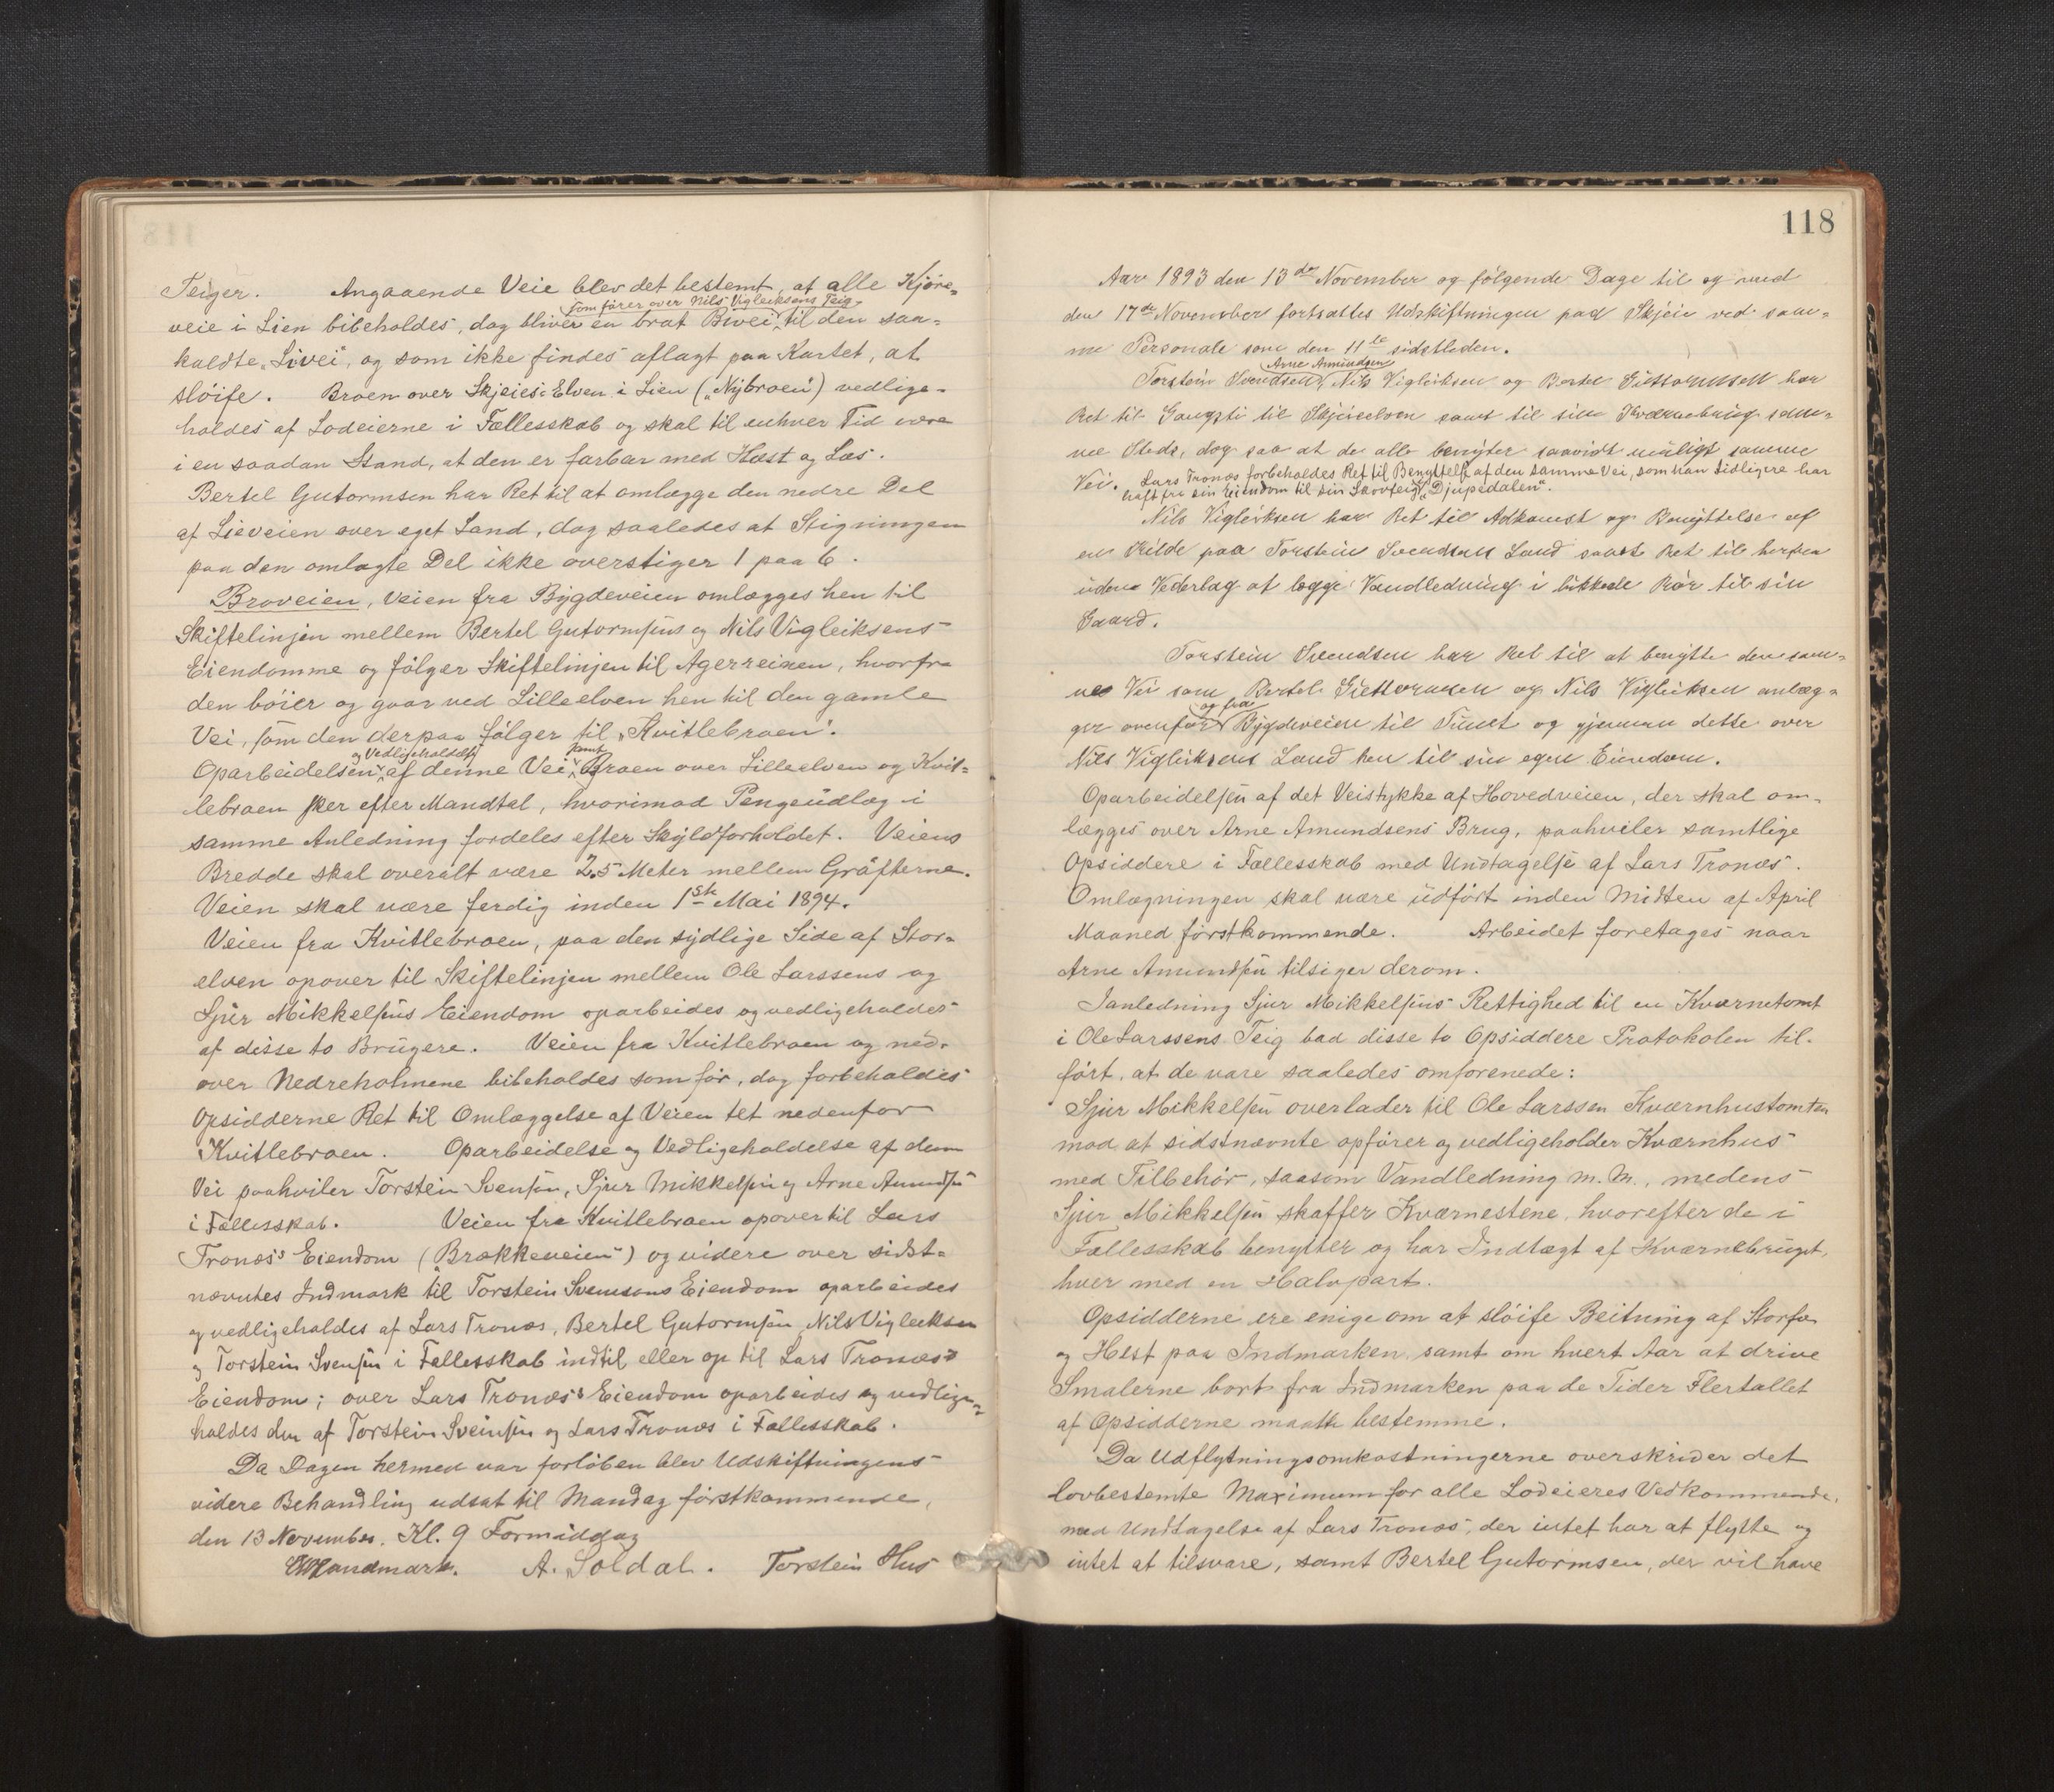 Teiger. Angaaende Veie blev det bestemt, at alle Kjøre-
som fører over Nils Vigleiksens Teig
veie i Lien bibeholdes, dog bliver en brat Bivei, til den saa-
kaldte „Livei", og som ikke findes aflagt paa Kartet, at
sløife. Broen over Skjeies-Elven i Lien („Nybroen") vedlige-
holdes af Lodeierne i Fællesskab og skal til enhver Tid være
i en saadan Stand, at den er farbar med Hæst og Læs.
Bertel Gutormsen har Ret til at omlægge den nedre Del
af Lieveien over eget Land, dog saaledes at Stigningen
paa den omlagte Del ikke overstiger 1 paa 6.
Broveien, Veien fra Bygdeveien omlægges hen til
Skiftelinjen mellem Bertel Gutormsens og Nils Vigleiksens
Eiendomme og følger Skiftelinjen til Agerreinen, hvorfra
den bøier og gaar ved Lilleelven hen til den gamle
Vei, som den derpaa følger til „Kvitlebroen".
og Vedligeholdelse samt
Oparbeidelsen af denne Vei, Broen over Lilleelven og Kvit-
lebroen sker efter Mandtal, hvorimod Pengeudlæg i
samme Anledning fordeles efter Skyldforholdet. Veiens
Bredde skal overalt være 2.5 Meter mellem Grøfterne.
Veien skal være ferdig inden 1ste Mai 1894.
Veien fra Kvitlebroen, paa den sydlige Side af Stor-
elven opover til Skiftelinjen mellem Ole Larssens og
Sjur Mikkelsens Eiendom oparbeides og vedligeholdes
af disse to Brugere. Veien fra Kvitlebroen og ned-
over Nedreholmene bibeholdes som før, dog forbeholdes
Opsidderne Ret til Omlæggelse af Veien tet nedenfor
Kvitlebroen. Oparbeidelse og Vedligeholdelse af denne
Vei paahviler Torstein Svensen, Sjur Mikkelsen og Arne Amundsen
i Fællesskab. Veien fra Kvitlebroen opover til Lars
Tronæs's Eiendom („Brækkeveien") og videre over sidst-
nævntes Indmark til Torstein Svensens Eiendom oparbeides
og vedligeholdes af Lars Tronæs, Bertel Gutormsen, Nils Vigleiksen
og Torstein Svensen i Fellesskab indtil eller op til Lars Tronæs's
Eiendom; over Lars Tronæs's Eiendom oparbeides og vedlige-
holdes den af Torstein Sveinsen og Lars Tronæs i Fællesskab.
Da Dagen hermed var forløben blev Udskiftningens
videre Behandling udsat til Mandag førstkommende,
den 13 November. Kl. 9 Formiddag
Handmark. A. Soldal. Torstein Hus
118
Aar 1893 den 13de November og følgende Dage til og med
den 17de November fortsattes Udskiftningen paa Skjeie ved sam-
me Personale som den 11te sidstleden.
Arne Amundsen
Torstein Svendsen, Nils Vigleiksen og Bertel Guttormsen har
Ret til Gangsti til Skjeieelven samt til sin Kværnebrug sam-
me Steds, dog saa at de alle benytter saavidt muligt samme
Vei. Lars Tronæs forbeholdes Ret til Benyttelse af den samme Vei, som han tidligere har
haft fra sin Eiendom til sin Skovteig „Djupedalen".
Nils Vigleiksen har Ret til Adkomst og Benyttelse af
en Kilde paa Torstein Svendsens Land samt Ret til herfra
uden Vederlag at lægge Vandledning i lukkede Rør til sin
Gaard.
Torstein Svendsen har Ret til at benytte den sam-
me Vei som Bertel Guttormsen og Nils Vigleiksen anlæg-
og fra
ger ovenfor Bygdeveien til Tunet og gjennem dette over
Nils Vigleiksens Land hen til sin egen Eiendom.
Oparbeidelsen af det Veistykke af Hovedveien, der skal om-
lægges over Arne Amundsens Brug, paahviler samtlige
Opsiddere i Fællesskab med Undtagelse af Lars Tronæs.
Omlægningen skal være udført inden Midten af April
Maaned førstkommende. Arbeidet foretages naar
Arne Amundsen tilsiger derom.
Ianledning Sjur Mikkelsens Rettighed til en Kværnetomt
i Ole Larssens Teig bad disse to Opsiddere Protokolen til-
ført, at de vare saaledes omforenede:
Sjur Mikkelsen overlader til Ole Larssen Kværnhustomten
mod at sidstnævnte opfører og vedligeholder Kværnhus
med Tilbehør, saasom Vandledning m. M., medens
Sjur Mikkelsen skaffer Kværnestene, hvorefter de i
Fællesskab benytter og har Indtægt af Kværnebruget,
hver med en Halvpart.
Opsidderne ere enige om at sløife Beitning af Storfæ
og Hest paa Indmarken, samt om hvert Aar at drive
Smalerne bort fra Indmarken paa de Tider Flertallet
af Opsidderne maatte bestemme.
Da Udflytningsomkostningerne overskrider det
lovbestemte Maximum for alle Lodeieres Vedkommende,
med Undtagelse af Lars Tronæs, der intet har at flytte og
intet at tilsvare, samt Bertel Gutormsen, der vil have